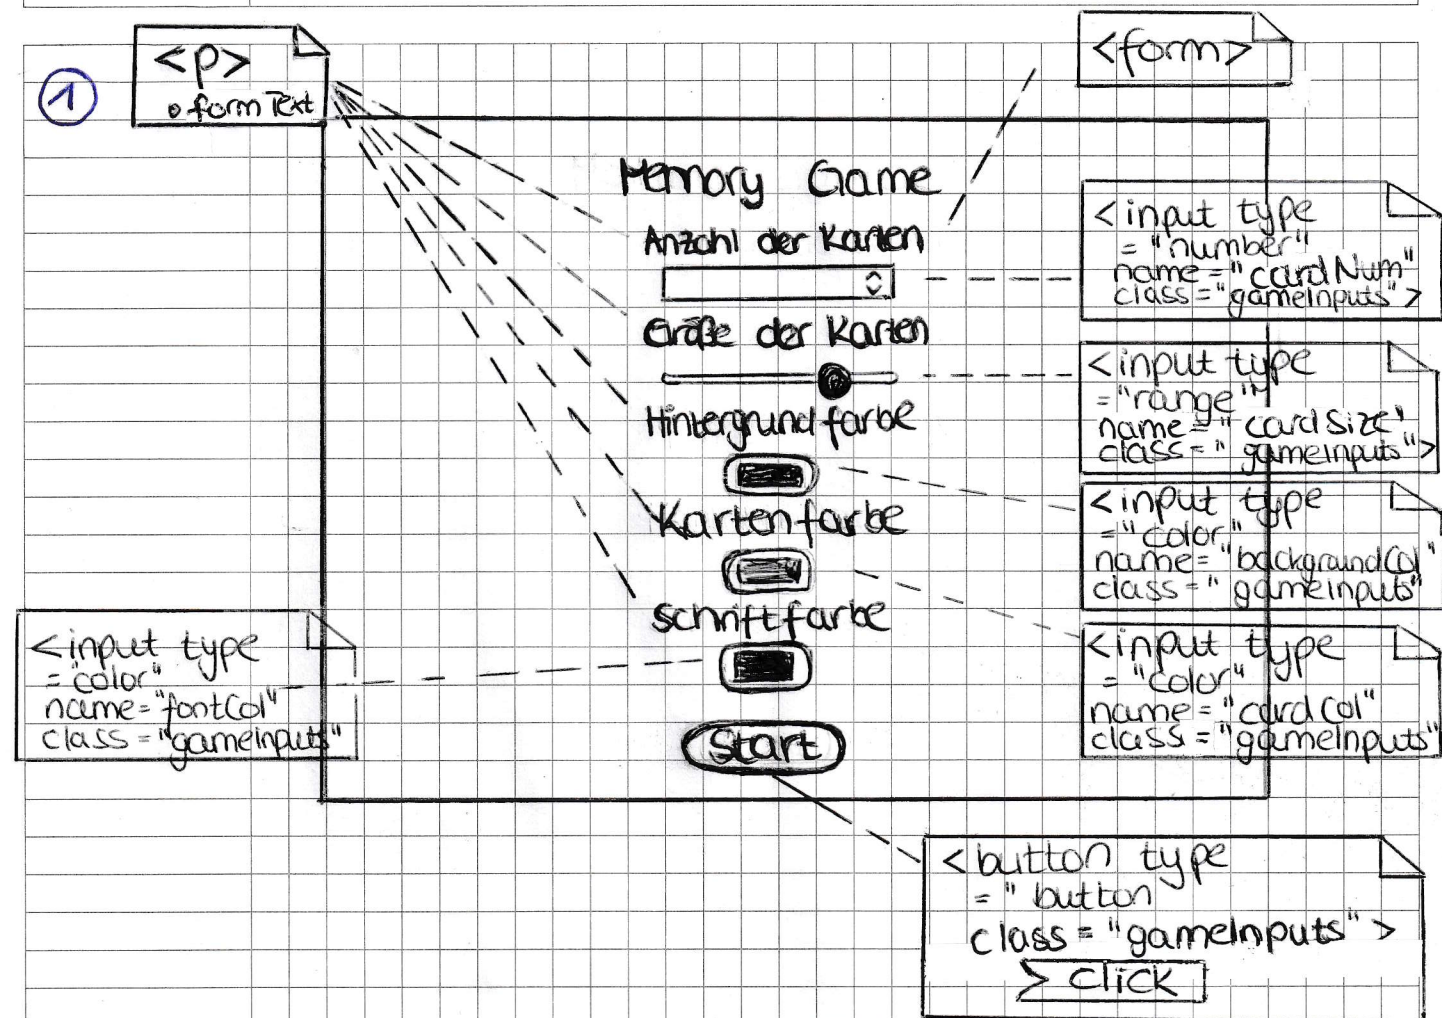 1
<p>
• formText
<form>
Memory Game
Anzahl der Karten
Größe der Karten
Hintergrundfarbe
Kartenfarbe
Schriftfarbe
Start
<input type
= "number"
name = "cardNum"
class = "gameInputs" >
<input type
= "range"
name = "cardSize'
class = " gameInputs" >
<input type
= "color"
name = "backgroundCol"
class = " gameInputs"
<input type
= "color"
name = "cardCol"
class = "gameInputs"
<input type
= "color"
name = "fontCol"
class = "gameInputs"
<button type
= " button
class = "gameInputs" >
click